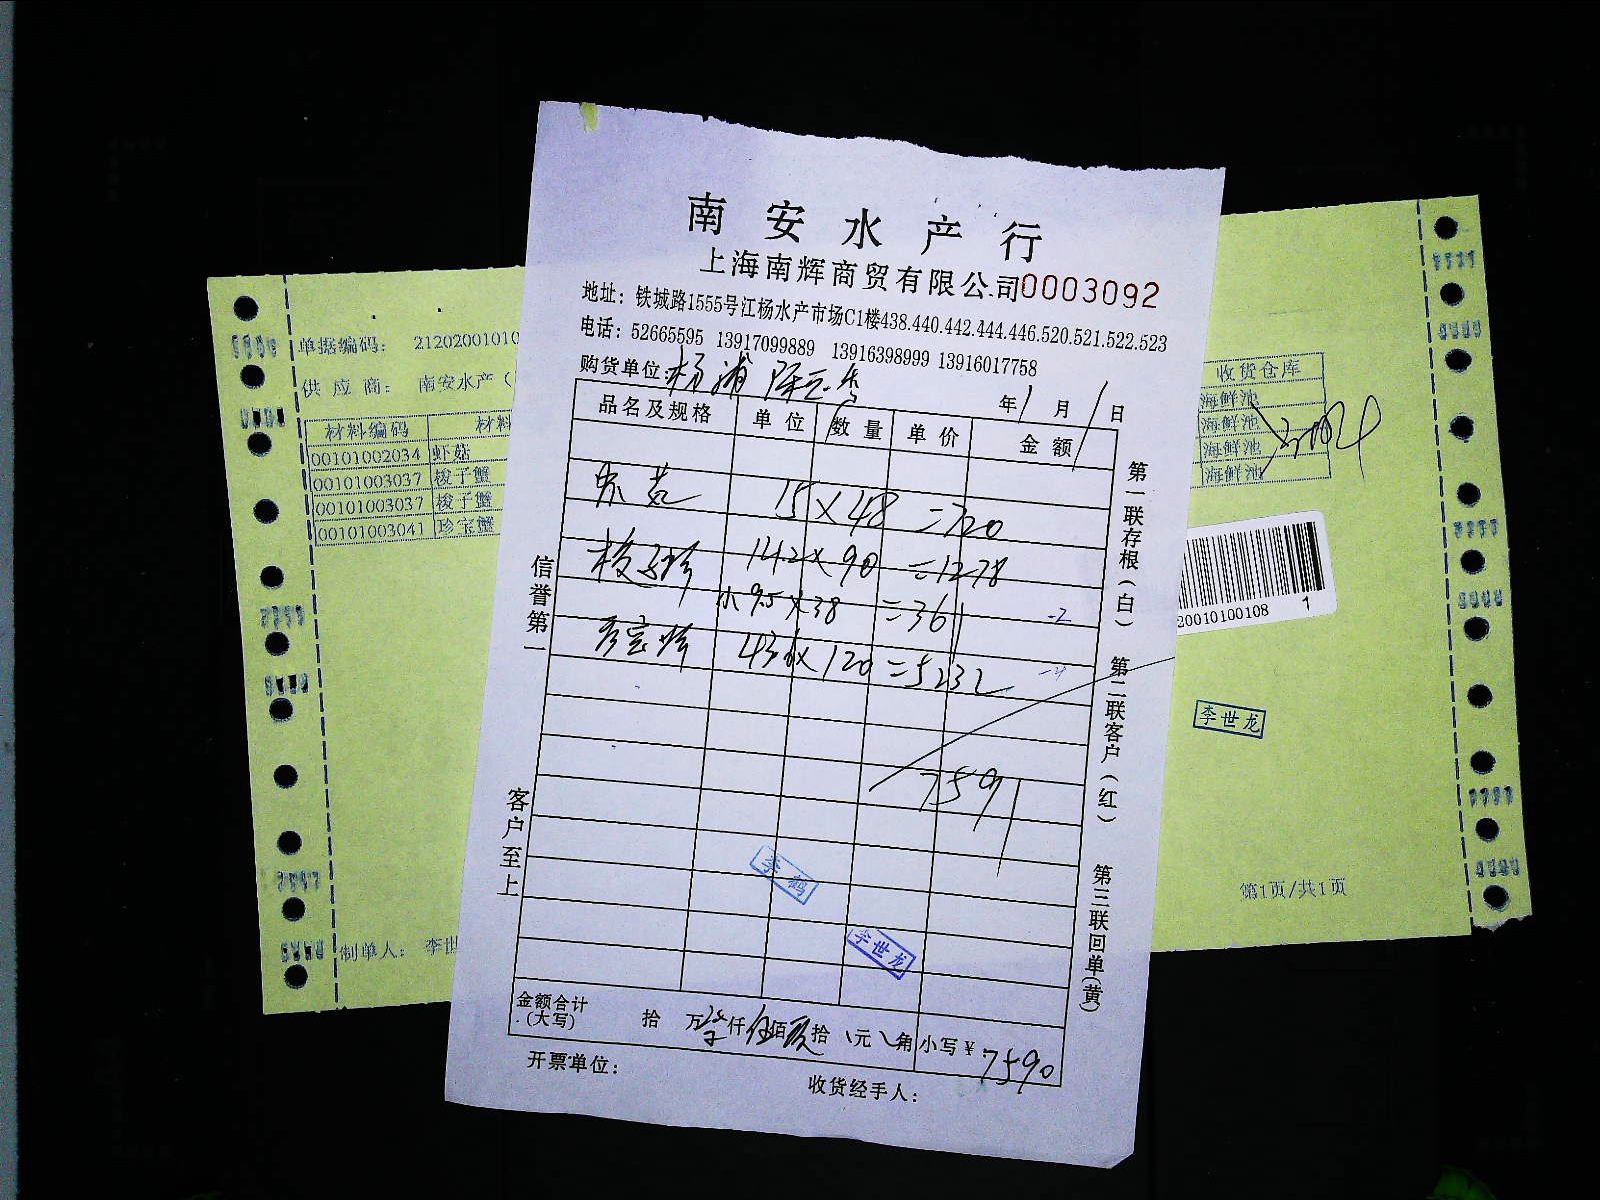 南安水产行
上海南辉商贸有限公司0003092
地址：铁城路1555号江杨水产市场C1楼438.440.442.444.446.520.521.522.523
电话：52665595 13917099889 13916398999 13916017758
购货单位：杨浦
年1月1日
品名及规格 单位 数量 单价 金额
15×48=720
梭子蟹 14.2×90=1278
小9.5×38=361
-2
43.6×120=5232
7591
李鹤
李世龙
金额合计（大写） 拾 万 仟伍佰 拾 元 角 小写￥7590
开票单位：
收货经手人：
信誉第一
客户至上
第一联存根（白）
第二联客户（红）
第三联回单（黄）
单据编码： 21202001010
供应商： 南安水产（
材料编码 材料
00101002034 虾菇
00101003037 梭子蟹
00101003037 梭子蟹
00101003041 珍宝蟹
制单人： 李世
收货仓库
海鲜池
海鲜池
海鲜池
海鲜池
20010100108 1
李世龙
第1页/共1页